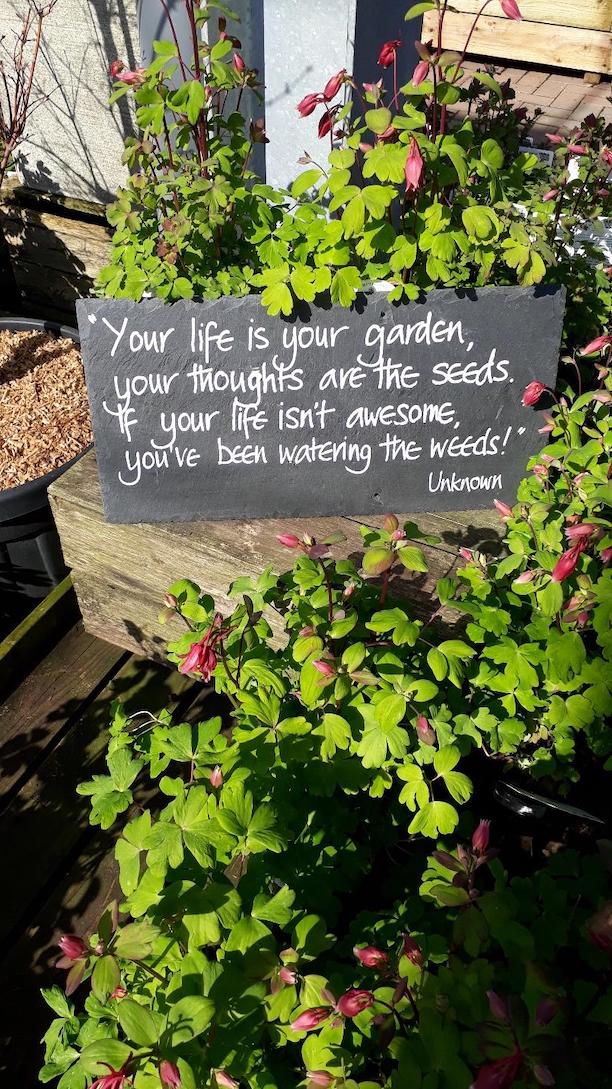 "Your life is your garden,
your thoughts are the seeds.
If your life isn't awesome,
you've been watering the weeds!"
Unknown